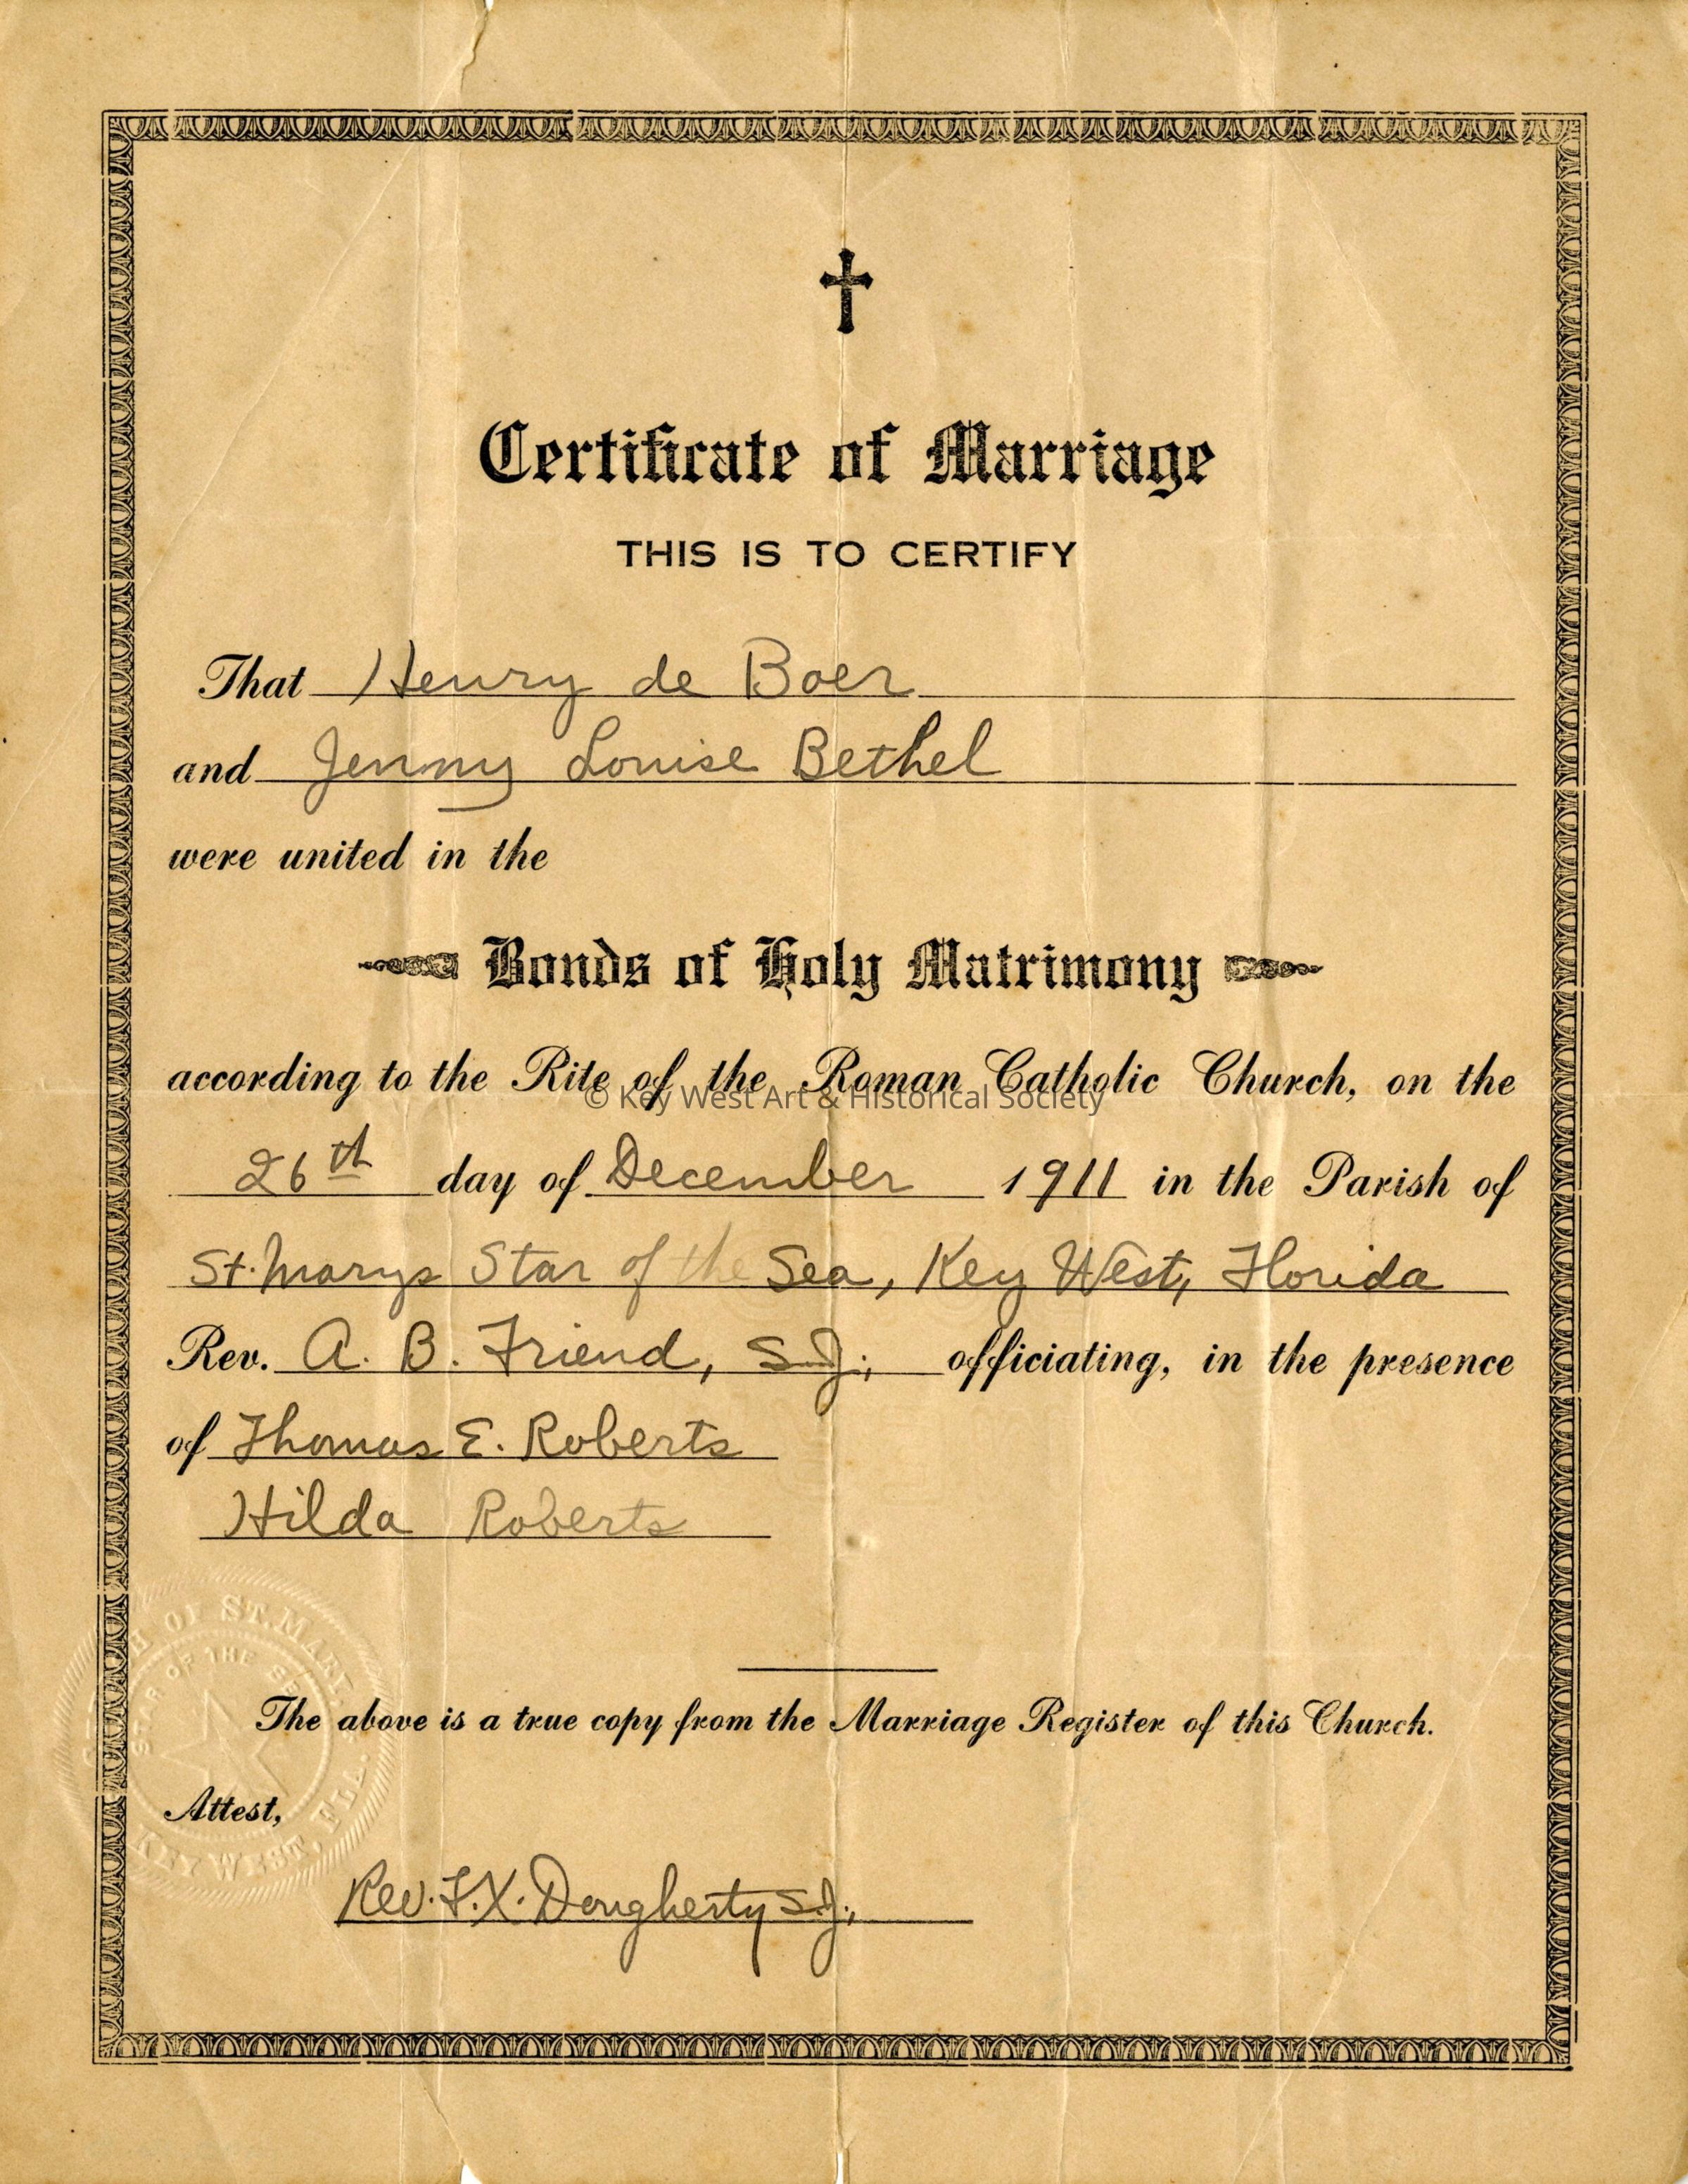 Certificate of Marriage
THIS IS TO CERTIFY
That Henry de Boer
and Jenny Louise Bethel
were united in the
Bonds of Holy Matrimony
according to the Rite of the Roman Catholic Church, on the
© Key West Art & Historical Society
26th day of December 1911 in the Parish of
St. Marys Star of the Sea, Key West, Florida
Rev. A. B. Friend, S.J., officiating, in the presence
of Thomas E. Roberts
Hilda Roberts
OF ST. MARY
STAR OF THE SEA
KEY WEST, FLA.
The above is a true copy from the Marriage Register of this Church.
Attest,
Rev. F.X. Dougherty S.J.,